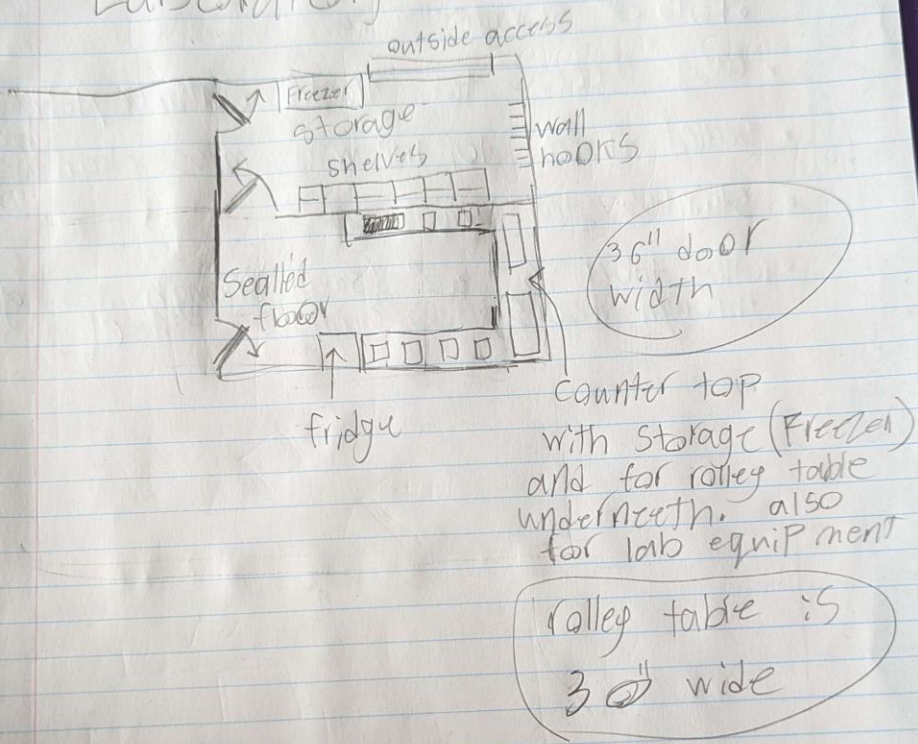 Laboratory
outside access
Freezer
storage
shelves
wall
hooks
36" door
width
Sealled
floor
fridge
counter top
with storage (Freezer)
and for rolley table
underneeth. also
for lab equipment
rolley table is
30" wide